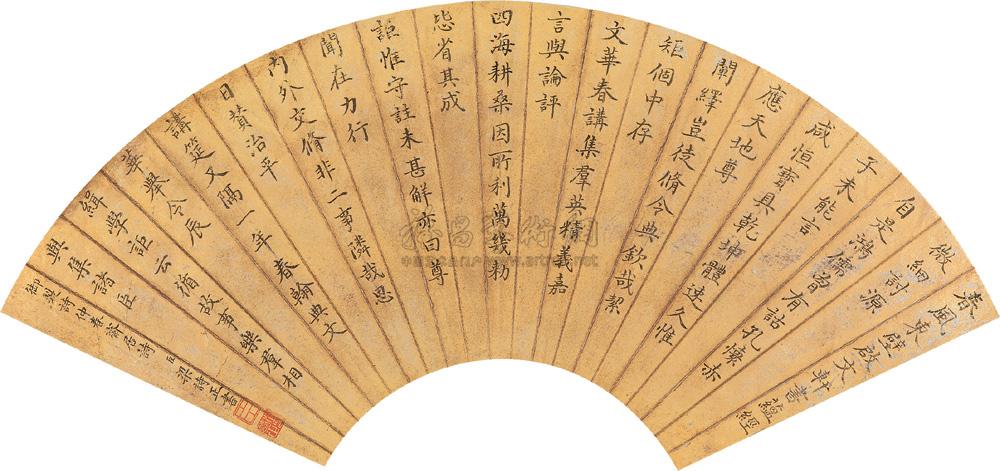 春風東壁啟文軒書蘊經
微細討源
伯是鴻儒曾有話孔懷亦
子未能言
咸恒寶具乾坤體速久惟
應天地尊
闡繹豈徒脩令典欽哉絜
矩個中存
文華春講集羣英精義嘉
言與論評
四海耕桑因所利萬幾勑
省其成
詎惟守註未甚解亦曰尊
聞在力行
內外交脩非二事隣哉思
日贊治平
講筵又隔一年春翰典文
華舉令辰
緝學詎云循故事樂羣相
與集諸臣
御製詩仲春齋居詩 臣梁詩正書